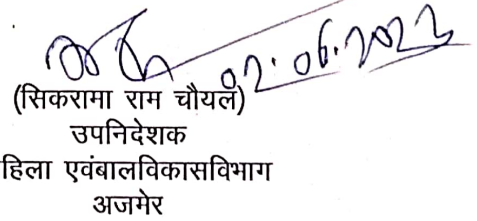 02.06.2023
(सिकरामा राम चौयल)
उपनिदेशक
हिला एवंबालविकासविभाग
अजमेर